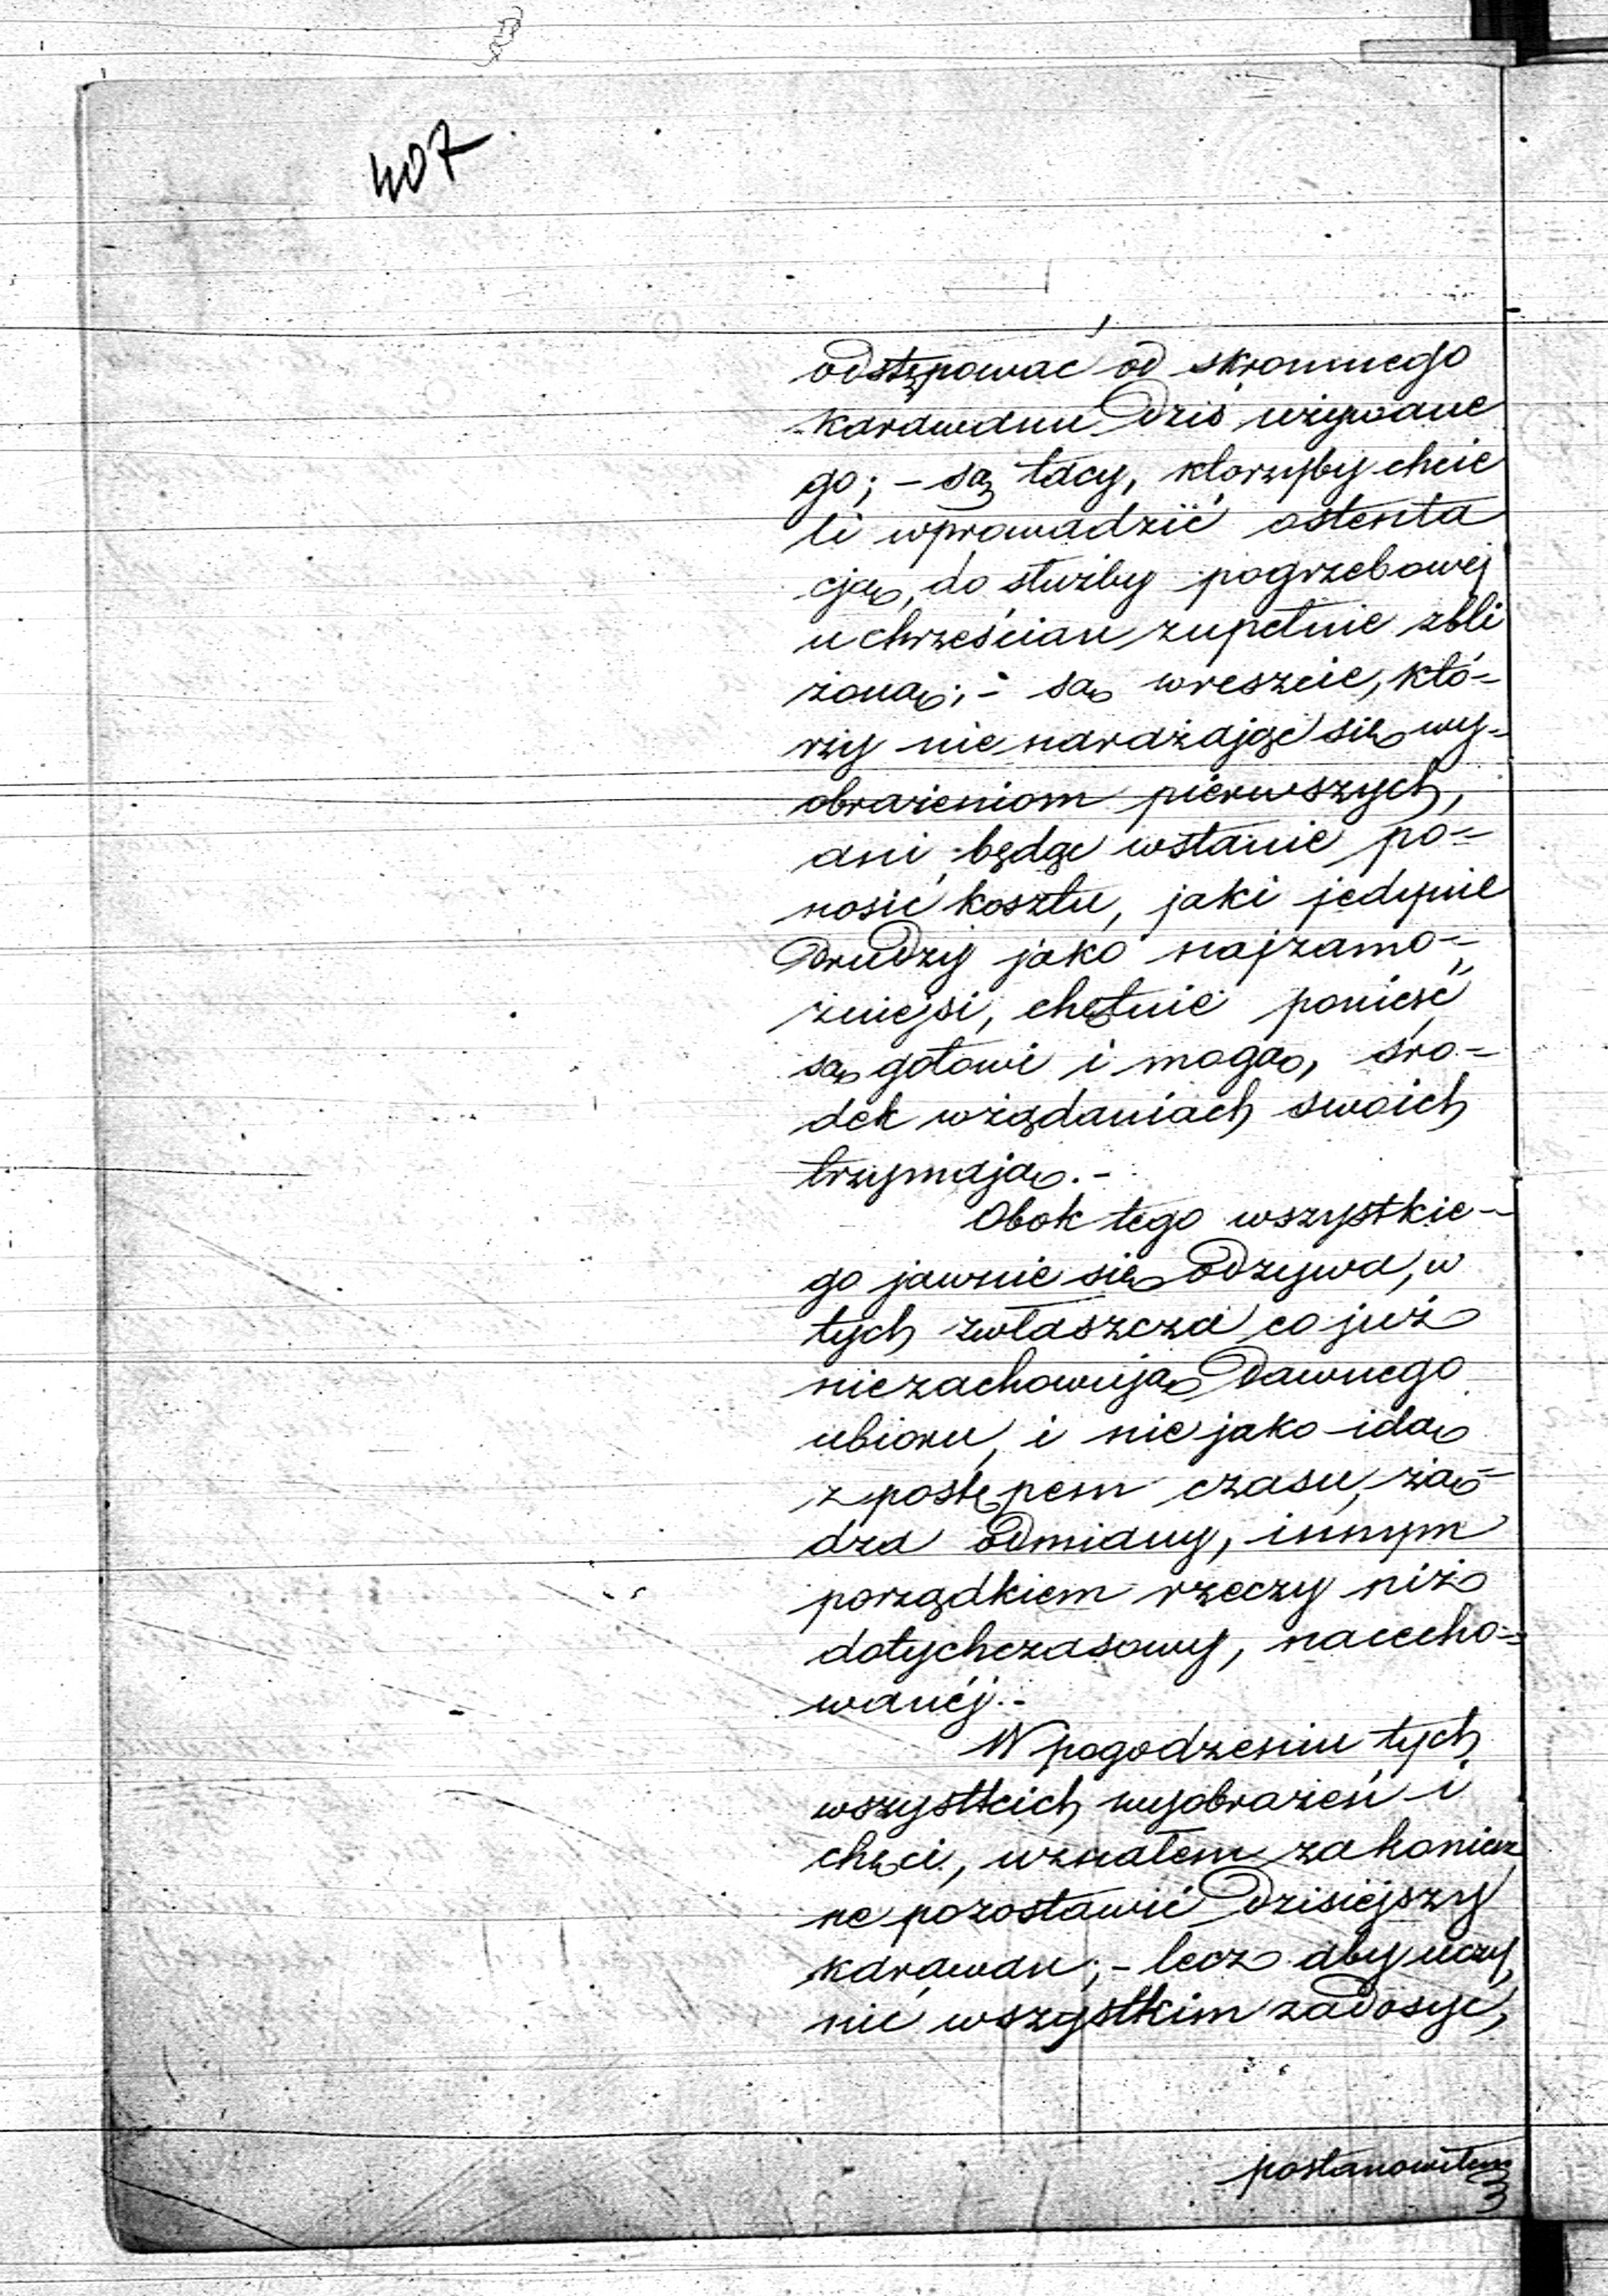 407
odstępować od skromnego
karawanu dziś używane
go; – są tacy, którzyby chcie
li wprowadzić ostenta
cją, do służby pogrzebowej
u chrześcian zupełnie zbli
żoną; – są wreszcie, któ-
rzy nie narażając się wy-
obrażeniom pierwszych,
ani będąc wstanie po-
nosić kosztu, jaki jedynie
drudzy jako najzamo-
żniejsi, chętnie ponieść
są gotowi i mogą, śro-
dek wżądaniach swoich
trzymają. –
Obok tego wszystkie-
go jawnie się odzywa, w
tych zwłaszcza co już
niezachowują dawnego
ubioru, i nie jako idą
z postępem czasu, żą-
dza odmiany, innym
porządkiem rzeczy niż
dotychczasowy, nacecho-
wanéj. –
W pogodzeniu tych
wszystkich wyobrażeń i
chęci, uznałem za koniecz
ne pozostawić dzisiéjszy
karawan; – lecz aby uczy
nić wszystkim zadosyć,
postanowiłem